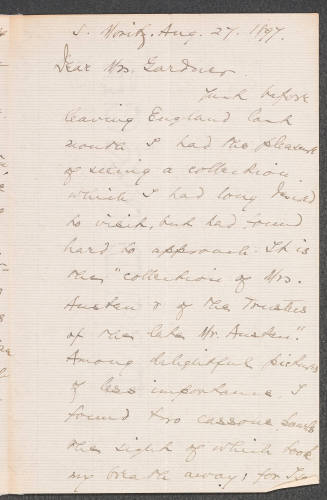 S. Moritz. Aug. 27. 1897.
Dear Mrs. Gardner
Just before
leaving England last
month I had the pleasure
of seeing a collection
which I had long desired
to visit, but had found
hard to approach. It is
the "collection of Mrs.
Austen & of the Trustees
of the late Mr. Austen."
Among delightful pictures
of less importance I
found two cassone panels
the sight of which took
my breath away; for